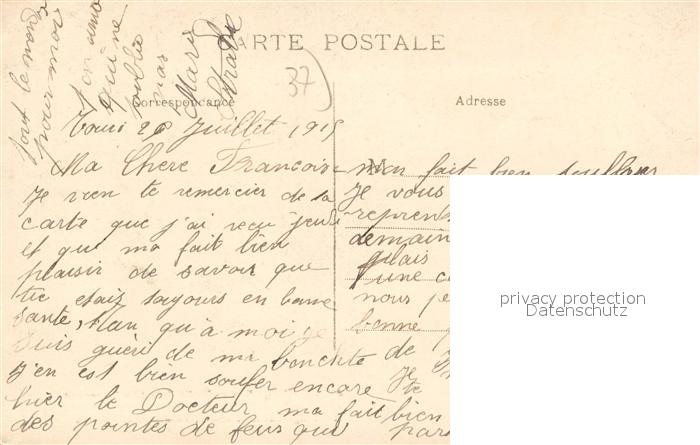 CARTE POSTALE
37
Correspondance
Adresse
tout le monde
pour moi
ton amie
qui ne
t'oublie
pas
Marie
Tours 20 Juillet 1915
Ma Chere Francoise
Je vien te remercier de ta
carte que j'ai recu jeudi
et qui ma fait bien
plaisir de savoir que
tu etais toujours en bonne
santé, quan qu'à moi je
suis guéri de ma bonchite
J'en est bien soufer encore
hier le Docteur ma fait
des pointes de feus que
mon fait bien
Je vous
reprens
demain
une
nous
bonne
de
Je te
bien
privacy protection
Datenschutz